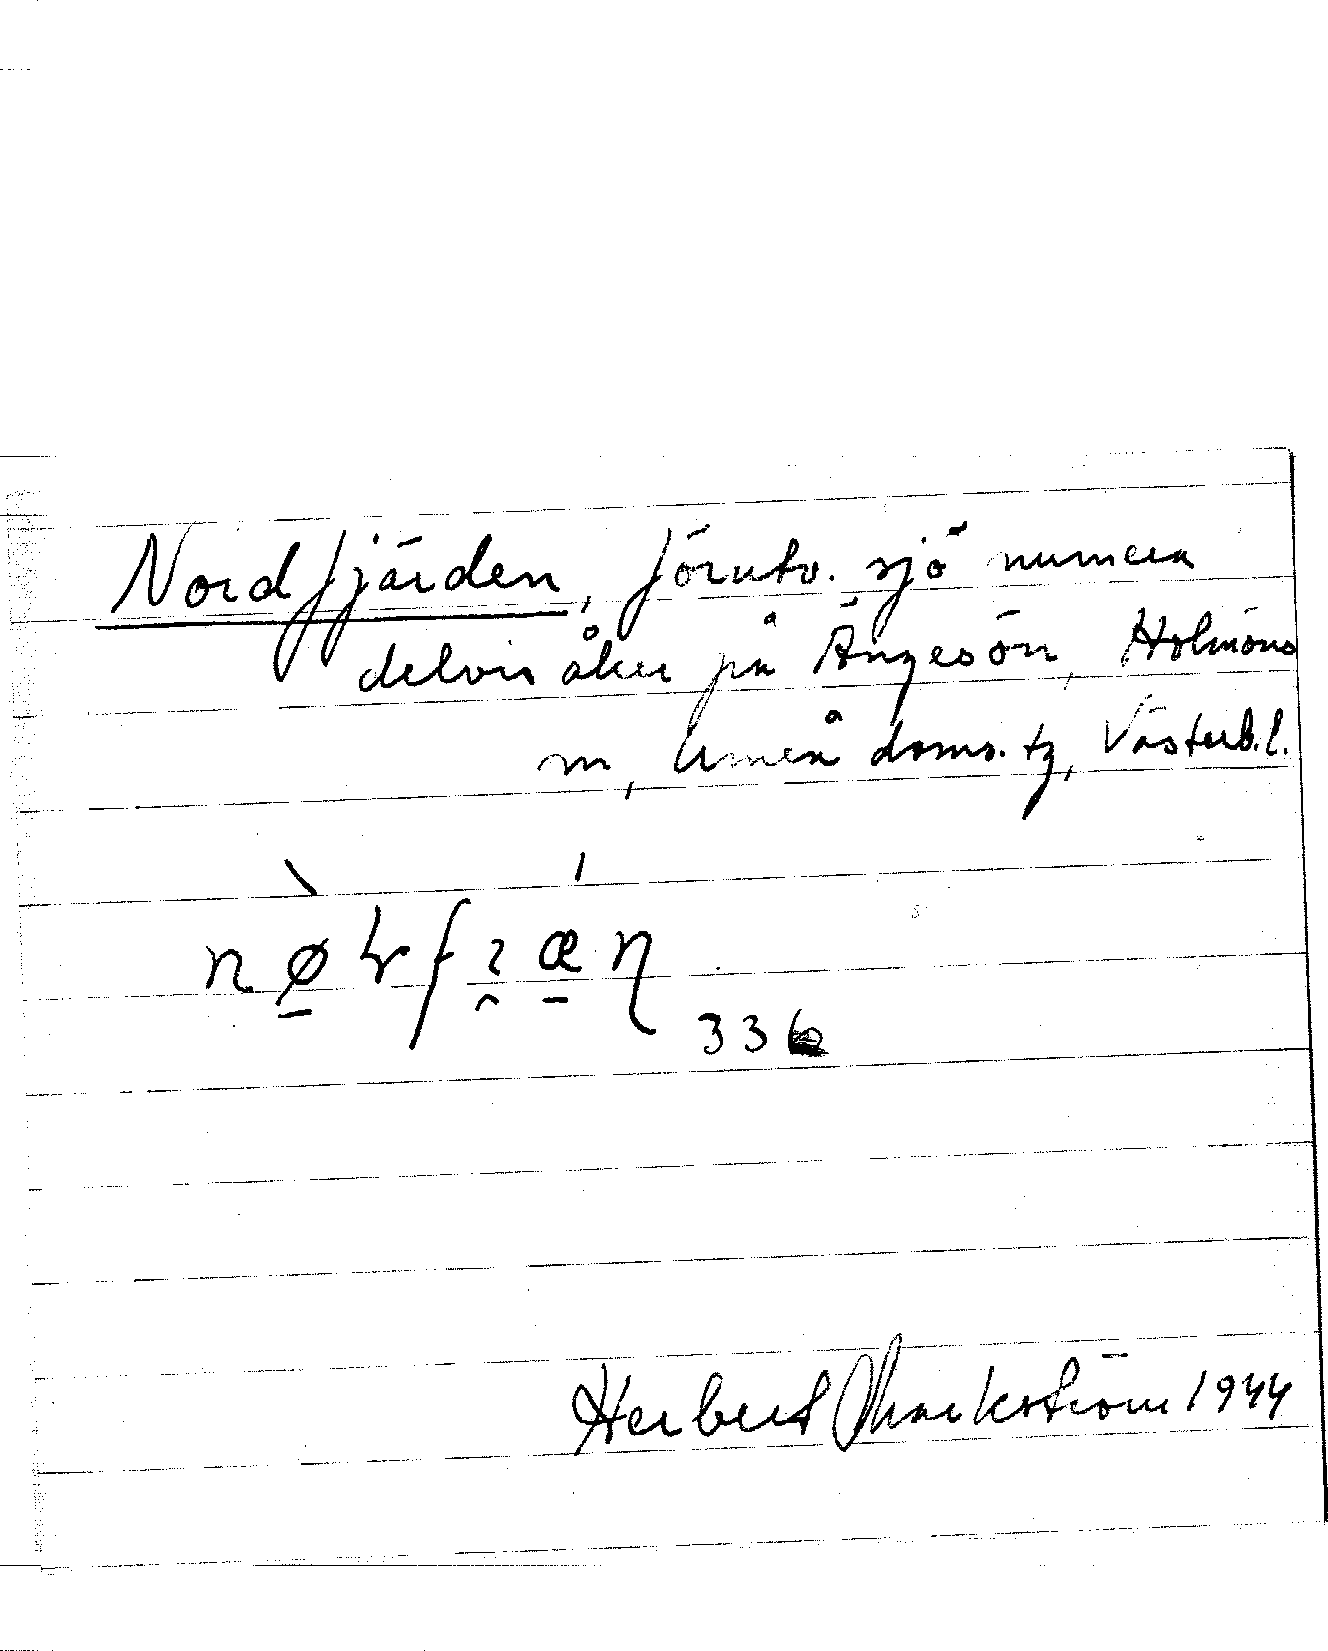 Nordfjärden, förutv. sjö numera
delvis åker på Ängesön, Holmöns
sn, Umeå doms. tg, Västerb. l.
336
Herbert Markström 1944